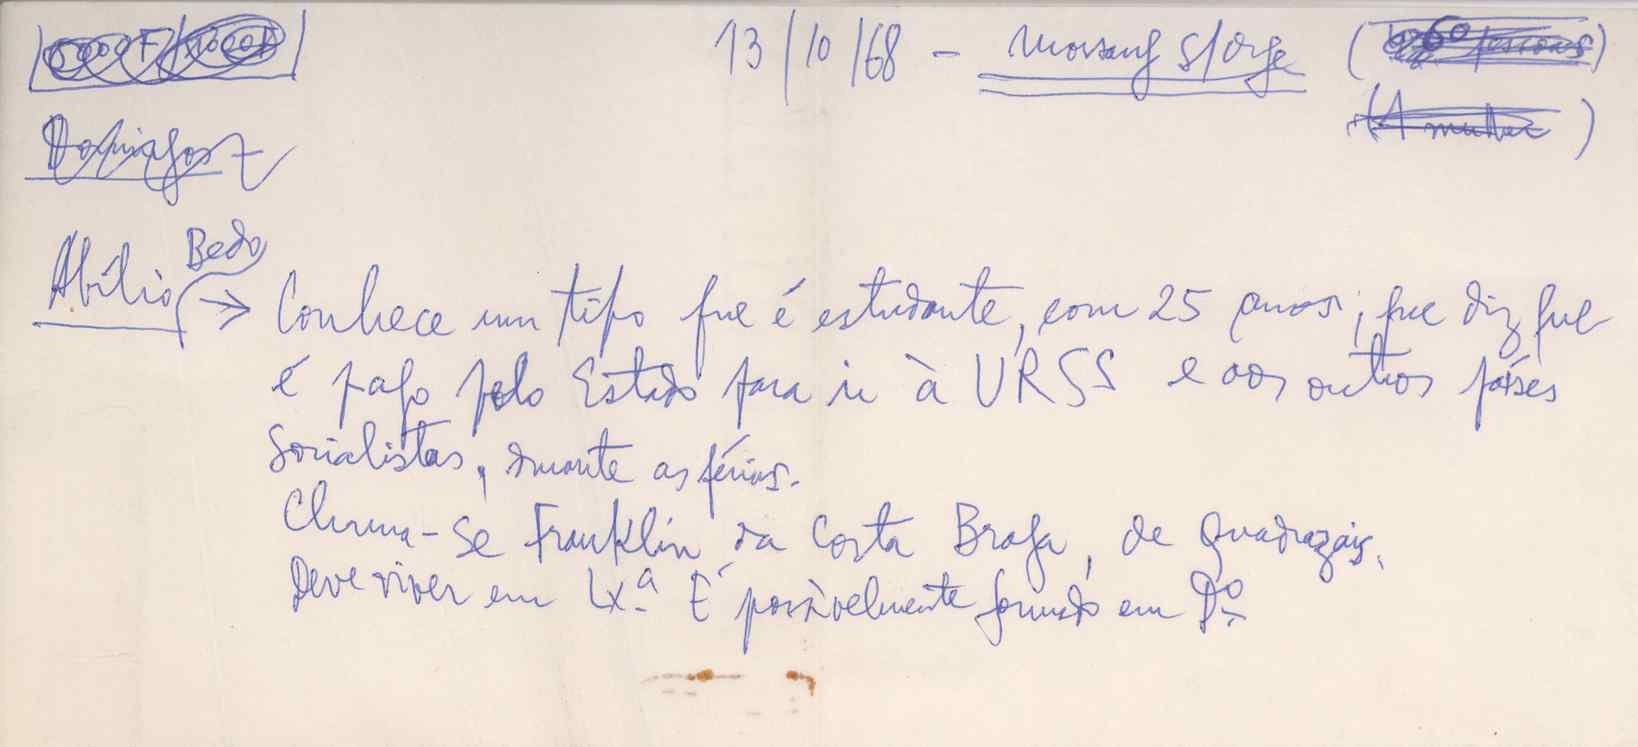 13/10/68 - Morsang s/Orge (60 pessoas)
(A mulher)
Domingos
Bedo
Abílio → Conhece um tipo que é estudante, com 25 anos, que diz que
é pago pelo Estado para ir à URSS e aos outros países
socialistas, durante as férias.
Chama-se Franklin da Costa Braga, de Quadrazais.
Deve viver em Lx.ª É possivelmente formado em Dº.